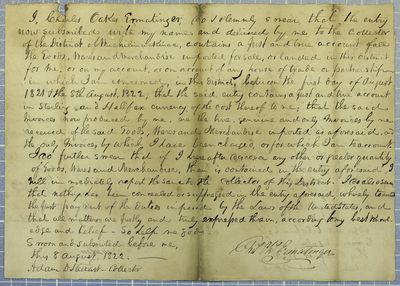 I, Charles Oakes Ermatinger, do solemnly swear, that the entry
now subscribed with my name and delivered by me to the Collector
of the District of Michilimackinac, contains a just and true account of all
the Goods, Wares and Merchandise imported for sale, or landed in this district
for me, or on my account, or on account of any house of trade or partnership
in which I am concerned, in this District, between the first day of August
1821 & the 8th August, 1822, that the said entry contains a just and true account
in Sterling and Halifax currency of the cost thereof to me; that the said
Invoices now produced by me, are the true, genuine and only Invoices by me
received of the said Goods, Wares and Merchandise imported as aforesaid, and
the only Invoices by which I have been charged, or for which I am to account.
I do further swear that if I hereafter receive any other or greater quantity
of Goods, Wares and Merchandise, than is contained in the entry aforesaid I
will immediately report the same to the Collector of this District. I also swear
that nothing has been concealed or suppressed in the entry aforesaid, whereby to avoid
the just payment of the Duties imposed by the Laws of the United States, and
that all matters are justly and truly expressed therein, according to my best knowl
edge and belief - So help me God -
Sworn and subscribed before me,
this 8 August, 1822.
Adam D Steuart - Collector
Chs Oks Ermatinger